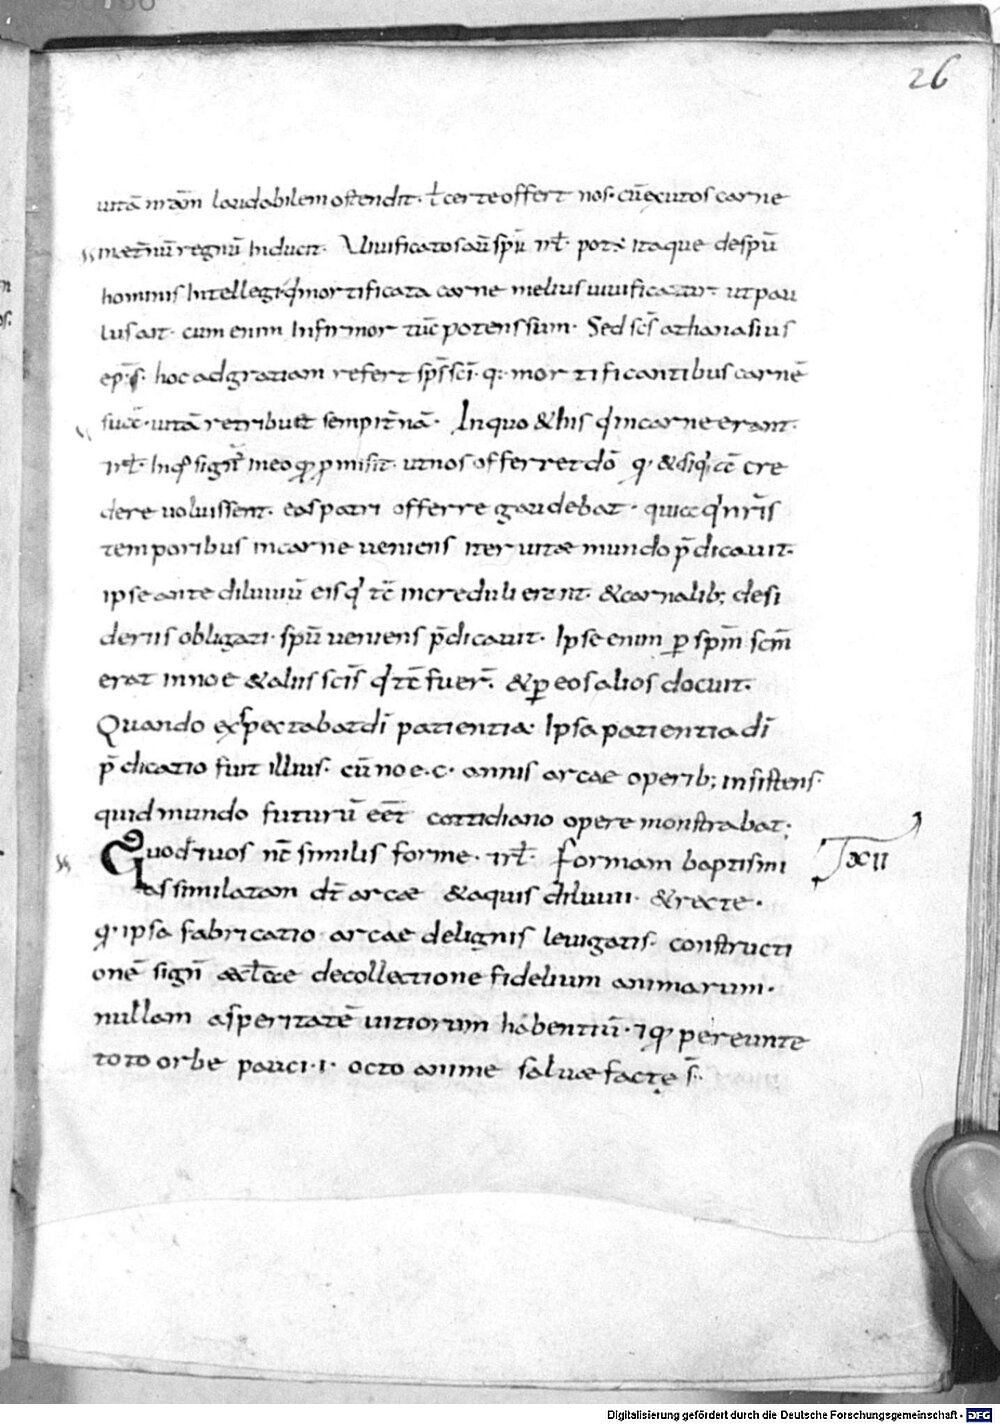 26
uitā nr̄am laudabilem ostendit· ł certe offert nos· cū exutos carne
in aet̄nū regnū Inducit· Uiuificatos aū spū irł· pot ÷ itaque de spū
hominis Intellegi qđ mortificata carne melius uiuificatur ut pau
lus ait· cum enim Infirmor tūc potens sum· Sed sc̄s athanasius
ep̄s· hoc ad gratiam refert sp̄s sc̄i· q· mortificantibus carnē
uitā retribuet sempit̄nā· In quo & his q̇ in carne erant·
nos offerret dō q· & cre
dere uoluissent· eos patri offerre gaudebat· quia q̇ nr̄is
temporibus in carne ueniens iter uitae mundo p̄dicauit·
ipse ante diluuiū eis q̇ tc̄ increduli erant· & carnalib; desi
deriis obligati· spū ueniens p̄dicauit· Ipse enim ꝑ spm̄ scm̄
erat in noe & aliis sc̄is q̇ tc̄ fuer̄· & ꝑ eos alios docuit·
Quando exspectabat dī patientia· Ipsa patientia dī
p̄dicatio fuit illius· cū noe·c· annis arcae operib; insistens·
quid mundo futurū eēt cottidiano opere monstrabat;
Quod & uos nc̄ similis forme· irł· formam baptismi
XII
assimilatam dt̄ arcae & aquis diluuii· & recte·
q· ipsa fabricatio arcae de lignis leuigatis· constructi
onē sign̄ aeccl̄ae de collectione fidelium animarum·
nullam asperitatē uitiorum habentiū· pereunte
toto orbe pauci·i· octo anime saluae factę s̄·
Digitalisierung gefördert durch die Deutsche Forschungsgemeinschaft - DFG